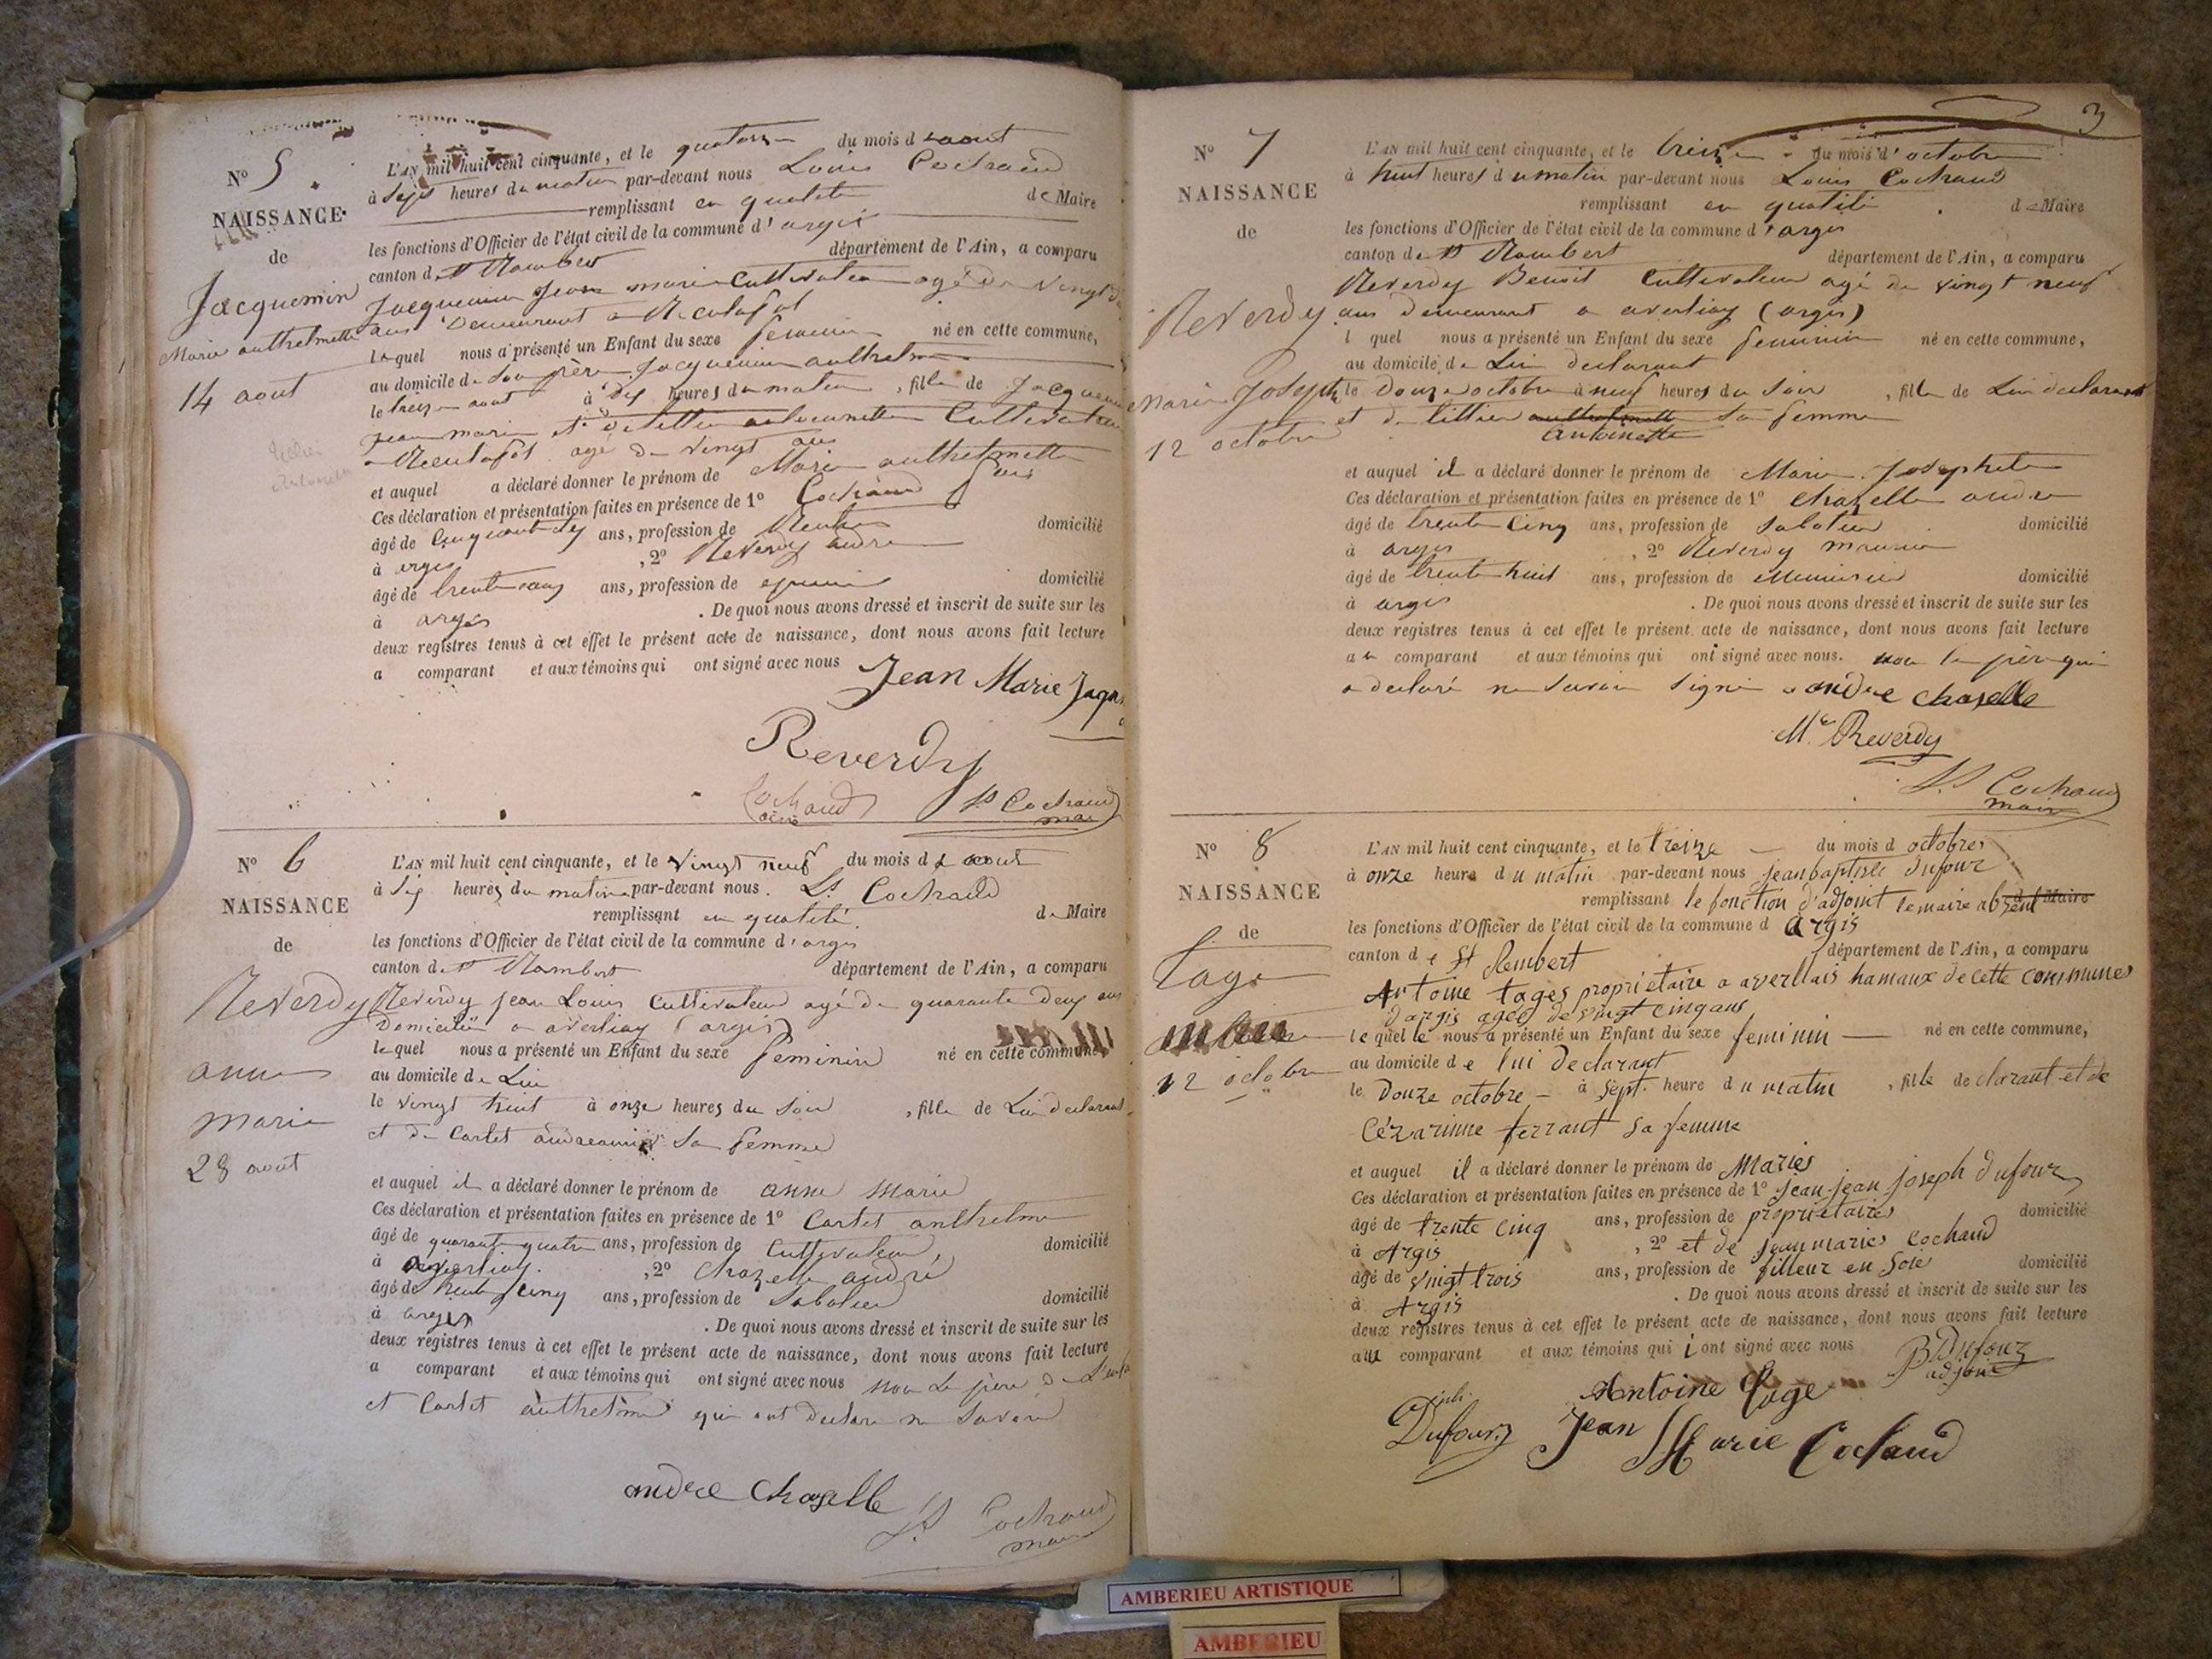 N° 5.
NAISSANCE
de
Jacquemin
Marie anthelmette
14 aout
L'AN mil huit cent cinquante, et le quatorze du mois d aout
à heures du matin par-devant nous Louis Cochaud
remplissant en qualité de Maire
les fonctions d'Officier de l'état civil de la commune d'argis
canton de St Rambert département de l'Ain, a comparu
Jacquemin Jean marie Cultivateur agé de vingt
ans Demeurant a
lequel nous a présenté un Enfant du sexe feminin né en cette commune,
au domicile de Son père Jacquemin anthelme
le treize aout à heures du matin, fille de
jean marie et Cultivateur
agé de vingt ans
et auquel a déclaré donner le prénom de Marie anthelmette
Ces déclaration et présentation faites en présence de 1° Cochaud
âgé de Cinquante ans, profession de domicilié
à argis, 2° Reverdy andré
âgé de trente ans, profession de domicilié
à argis. De quoi nous avons dressé et inscrit de suite sur les
deux registres tenus à cet effet le présent acte de naissance, dont nous avons fait lecture
a comparant et aux témoins qui ont signé avec nous
Jean Marie
Reverdy
Cochaud
Ls Cochaud
maire
N° 6
NAISSANCE
de
Reverdy
anne
marie
28 aout
L'AN mil huit cent cinquante, et le vingt neuf du mois d aout
à heures du matin par-devant nous. Ls Cochaud
remplissant en qualité de Maire
les fonctions d'Officier de l'état civil de la commune d'argis
canton de St Rambert département de l'Ain, a comparu
Reverdy jean Louis Cultivateur agé de quarante deux ans
Domicilié a averliaz (argis)
lequel nous a présenté un Enfant du sexe feminin né en cette commune,
au domicile de Lui
le vingt huit à onze heures du Soir, fille de Lui declarant
et de Cartet sa femme
et auquel il a déclaré donner le prénom de anne Marie
Ces déclaration et présentation faites en présence de 1° Cartet anthelme
âgé de quarante quatre ans, profession de Cultivateur, domicilié
à averliaz., 2° Chazelle andré
âgé de trente cinq ans, profession de Sabotier domicilié
à argis. De quoi nous avons dressé et inscrit de suite sur les
deux registres tenus à cet effet le présent acte de naissance, dont nous avons fait lecture
a comparant et aux témoins qui ont signé avec nous non le père de
et Cartet anthelme qui ont declaré ne Savoir
andré Chazelle
Ls Cochaud
maire
3
N° 7
NAISSANCE
de
Reverdy
Marie Josephte
12 octobre
L'AN mil huit cent cinquante, et le treize du mois d'octobre
à huit heures du matin par-devant nous Louis Cochaud
remplissant en qualité de Maire
les fonctions d'Officier de l'état civil de la commune d'argis
canton de St Rambert département de l'Ain, a comparu
Reverdy Benoit Cultivateur agé de vingt neuf
ans demeurant a averliaz (argis)
lequel nous a présenté un Enfant du sexe feminin né en cette commune,
au domicile de Lui declarant
le Douze octobre à neuf heures du Soir, fille de Lui declarant
et de tillier anthelmette sa femme
antoinette
et auquel il a déclaré donner le prénom de Marie Josephte
Ces déclaration et présentation faites en présence de 1° Chazelle andré
âgé de trente Cinq ans, profession de Sabotier domicilié
à argis, 2° Reverdy maurice
âgé de trente huit ans, profession de Menuisier domicilié
à argis. De quoi nous avons dressé et inscrit de suite sur les
deux registres tenus à cet effet le présent acte de naissance, dont nous avons fait lecture
au comparant et aux témoins qui ont signé avec nous. non le père qui
a declaré ne Savoir Signer andre Chazelle
Mce Reverdy
Ls Cochaud
maire
N° 8
NAISSANCE
de
Tage
12 octobre
L'AN mil huit cent cinquante, et le treize du mois d octobre
à onze heure du matin par-devant nous jean baptiste Dufour
remplissant le fonction d'adjoint le maire absent Maire
les fonctions d'Officier de l'état civil de la commune d Argis
canton de St Rembert département de l'Ain, a comparu
Antoine tages propriétaire a averllais hamaux de cette communes
d'argis agée de vingt cinq ans
le quel le nous a présenté un Enfant du sexe feminin né en cette commune,
au domicile de lui declarant
le Douze octobre à sept heure du matin, fille declarant et de
Cézarinne ferrant sa femme
et auquel il a déclaré donner le prénom de Maries
Ces déclaration et présentation faites en présence de 1° Jean jean joseph dufour
âgé de trente cinq ans, profession de proprietaires domicilié
à Argis, 2° et de jean maries Cochaud
âgé de vingt trois ans, profession de filleur en Soie domicilié
à Argis. De quoi nous avons dressé et inscrit de suite sur les
deux registres tenus à cet effet le présent acte de naissance, dont nous avons fait lecture
au comparant et aux témoins qui ont signé avec nous
B Dufour
adjoint
Antoine Tage
Dufour
Jean Marie Cochaud
AMBERIEU ARTISTIQUE
AMBERIEU